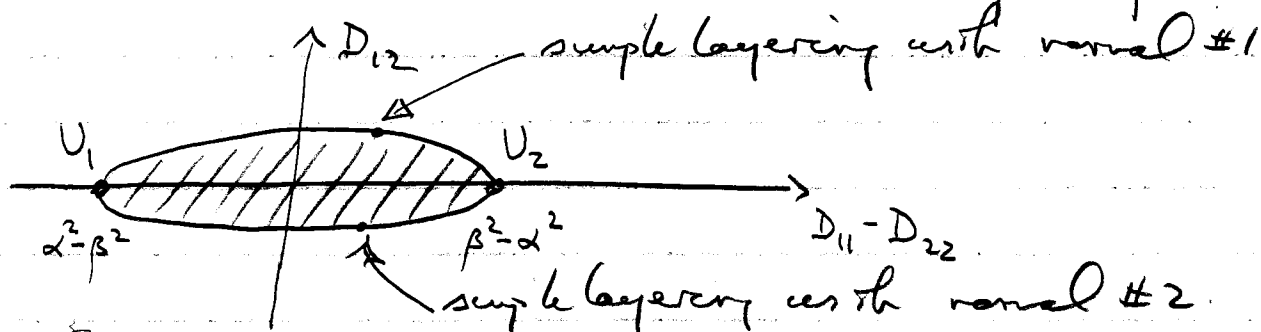 D₁₂
simple layering with normal #1
U₁
U₂
α²-β²
β²-α²
D₁₁-D₂₂
simple layering with normal #2.